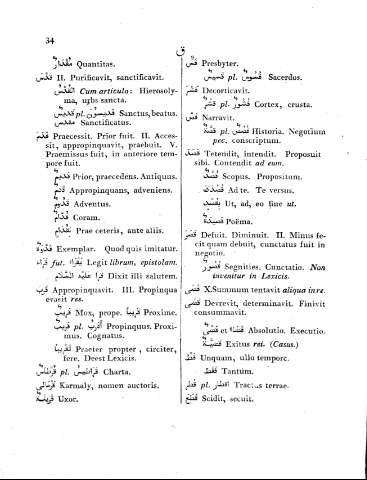 34
ق
مقدار Quantitas.
قدس II. Purificavit, sanctificavit.
القدس Cum articulo: Hierosoly-
ma, urbs sancta.
قديس pl. قديسون Sanctus, beatus.
مقدس Sanctificatus.
قدم Praecessit. Prior fuit. II. Acces-
sit, appropinquavit, praebuit. V.
Praemissus fuit, in anteriore tem-
pore fuit.
قديم Prior, praecedens. Antiquus.
قادم Appropinquans, adveniens.
قدوم Adventus.
قدام Coram.
Prae ceteris, ante aliis.
قدوة Exemplar. Quod quis imitatur.
قراء fut. يقراء Legit librum, epistolam.
قرا عليه السلام Dixit illi salutem.
قرب Appropinquavit. III. Propinqua
evasit res.
قريب Mox, prope. قريبا Proxime.
قريب pl. اقرب Propinquus. Proxi-
mus. Cognatus.
تقريبا Praeter propter, circiter,
fere. Deest Lexicis.
قرطاس pl. قراطيس Charta.
Karmaly, nomen auctoris.
قرينة Uxor.
قس Presbyter.
قسيس pl. قسوس Sacerdos.
قشر Decorticavit.
قشر pl. قشور Cortex, crusta.
قص Narravit.
قصة pl. قصص Historia. Negotium
pec. conscriptum.
قصد Tetendit, intendit. Proposuit
sibi. Contendit ad eum.
قصد Scopus. Propositum.
قصدك Ad te. Te versus.
بقصد Ut, ad, eo fine ut.
قصيدة Poëma.
قصر Defuit. Diminuit. II. Minus fe-
cit quam debuit, cunctatus fuit in
negotio.
قصور Segnities. Cunctatio. Non
invenitur in Lexicis.
قصى X. Summum tentavit aliqua in re.
قضى Devrevit, determinavit. Finivit
consummavit.
قضى et قضاء Absolutio. Executio.
قضية Exitus rei. (Casus.)
قط Unquam, ullo tempore.
فقط Tantum.
قطر pl. اقطار Tractus terrae.
قطع Scidit, secuit.